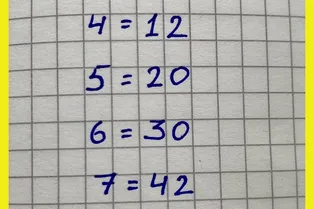 4 = 12
5 = 20
6 = 30
7 = 42